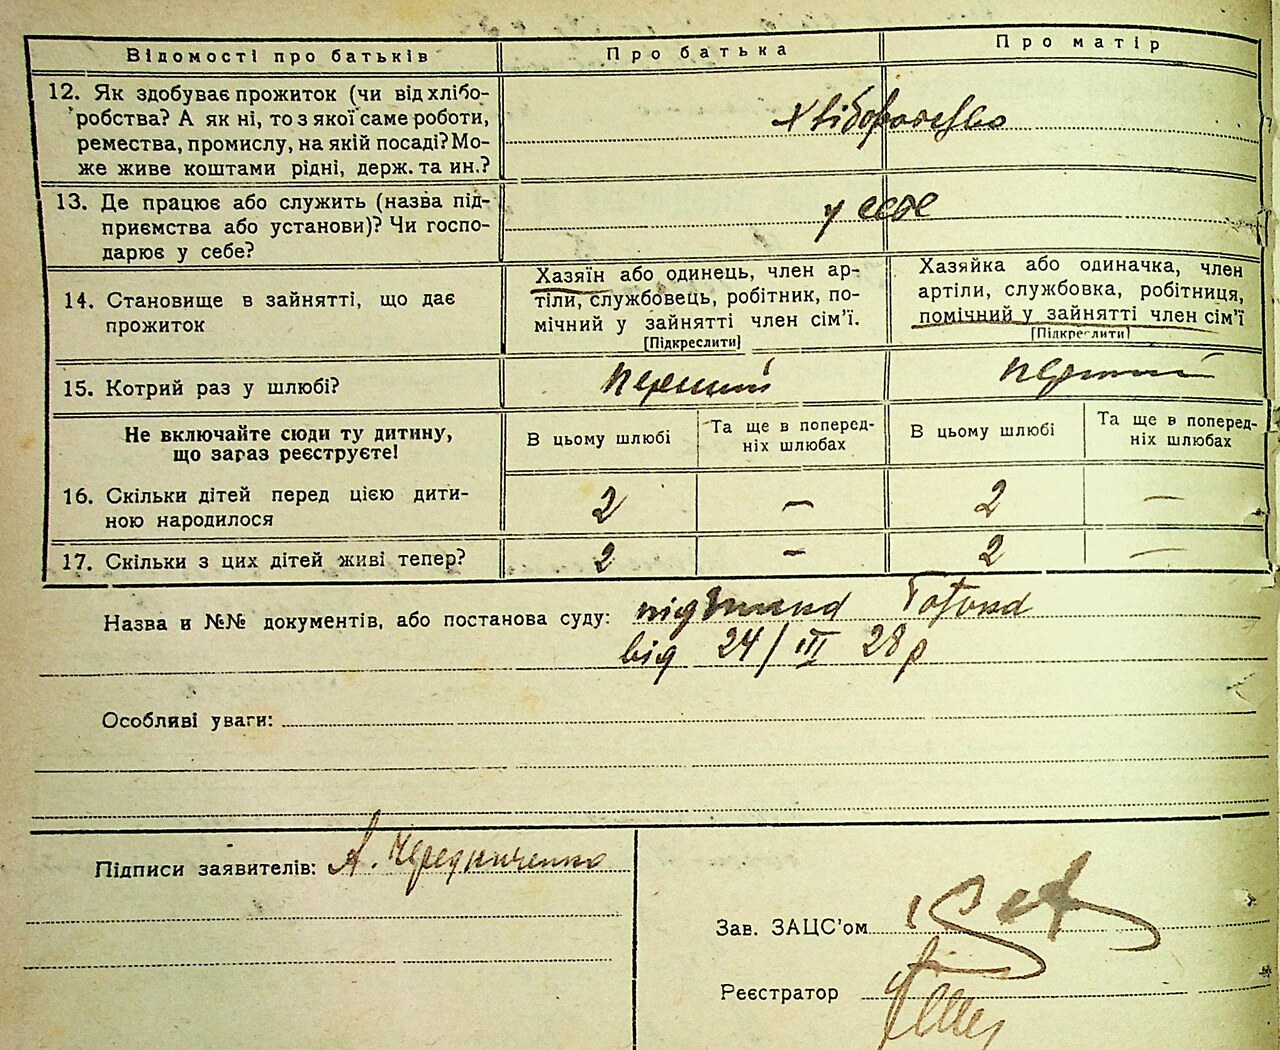 Відомості про батьків
Про батька
Про матір
12. Як здобуває прожиток (чи від хлібо-
робства? А як ні, то з якої саме роботи,
ремества, промислу, на якій посаді? Мо-
же живе коштами рідні, держ. та ин.?
Хліборобство
13. Де працює або служить (назва під-
приємства або установи)? Чи госпо-
дарює у себе?
у себе
14. Становище в зайнятті, що дає
прожиток
Хазяїн або одинець, член ар-
тіли, службовець, робітник, по-
мічний у зайнятті член сім’ї.
[Підкреслити]
Хазяйка або одиначка, член
артіли, службовка, робітниця,
помічний у зайнятті член сім’ї
[Підкреслити]
15. Котрий раз у шлюбі?
перший
перший
Не включайте сюди ту дитину,
що зараз реєструєте!
В цьому шлюбі
Та ще в поперед-
ніх шлюбах
В цьому шлюбі
Та ще в поперед-
ніх шлюбах
16. Скільки дітей перед цією дити-
ною народилося
2
—
2
—
17. Скільки з цих дітей живі тепер?
2
—
2
—
Назва и №№ документів, або постанова суду:
від 24/III 28 р
Особливі уваги:
Підписи заявителів: А. Чередниченко
Зав. ЗАЦС’ом
Реєстратор